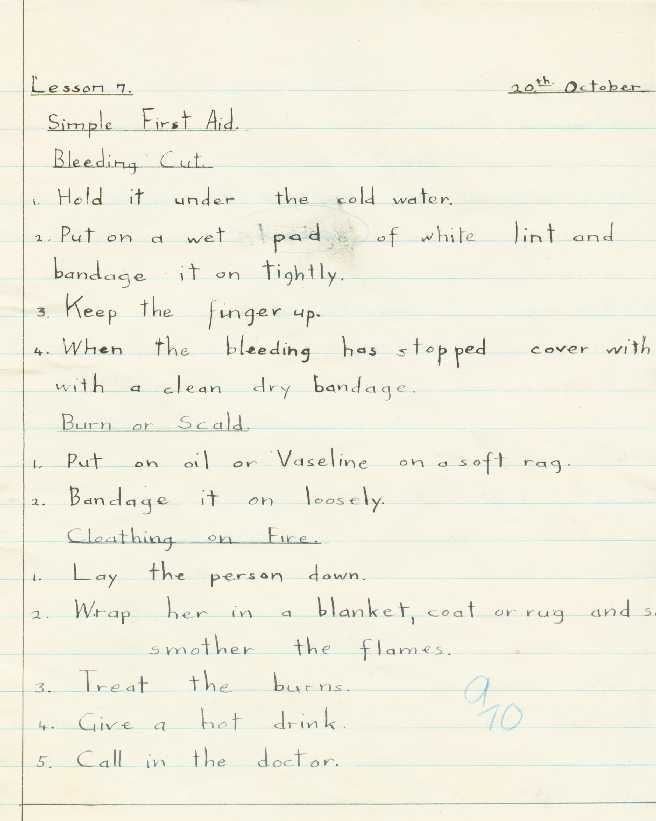 Lesson 7. 20th October
Simple First Aid.
Bleeding Cut.
1. Hold it under the cold water.
2. Put on a wet pad of white lint and
bandage it on tightly.
3. Keep the finger up.
4. When the bleeding has stopped cover with
with a clean dry bandage.
Burn or Scald.
1. Put on oil or Vaseline on a soft rag.
2. Bandage it on loosely.
Cloathing on Fire.
1. Lay the person down.
2. Wrap her in a blanket, coat or rug and
smother the flames.
3. Treat the burns.
4. Give a hot drink.
5. Call in the doctor.
9/10